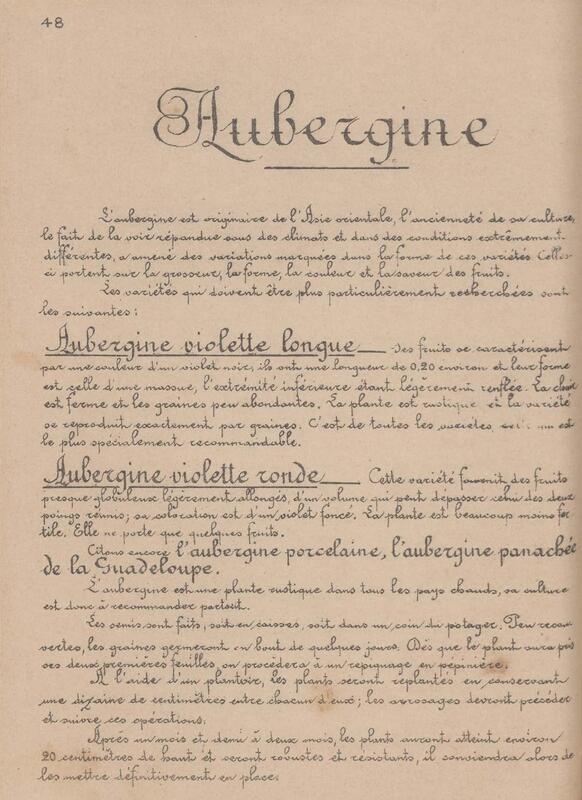 48
Aubergine
L'aubergine est originaire de l'Asie orientale, l'ancienneté de sa culture,
le fait de la voir répandue sous des climats et dans des conditions extrêmement
différentes, a amené des variations marquées dans la forme de ces variétés. Celles-
ci portent sur la grosseur, la forme, la couleur et la saveur des fruits.
Les variétés qui doivent être plus particulièrement recherchées sont
les suivantes :
Aubergine violette longue — Ses fruits se caractérisent
par une couleur d'un violet noir, ils ont une longueur de 0,20 environ et leur forme
est celle d'une massue, l'extrémité inférieure étant légèrement renflée. La chair
est ferme et les graines peu abondantes. La plante est rustique et la variété
se reproduit exactement par graines. C'est de toutes les variétés est
le plus spécialement recommandable.
Aubergine violette ronde — Cette variété fournit des fruits
presque globuleux légèrement allongés, d'un volume qui peut dépasser celui des deux
poings réunis ; sa coloration est d'un violet foncé. La plante est beaucoup moins fer
tile. Elle ne porte que quelques fruits.
Citons encore l'aubergine porcelaine, l'aubergine panachée
de la Guadeloupe.
L'aubergine est une plante rustique dans tous les pays chauds, sa culture
est donc à recommander partout.
Les semis sont faits, soit en caisses, soit dans un coin du potager. Peu recou
vertes, les graines germeront au bout de quelques jours. Dès que le plant aura pris
ses deux premières feuilles, on procédera à un repiquage en pépinière.
A l'aide d'un plantoir, les plants seront replantés en conservant
une dizaine de centimètres entre chacun d'eux ; les arrosages devront précéder
et suivre ces opérations.
Après un mois et demi à deux mois, les plants auront atteint environ
20 centimètres de haut et seront robustes et résistants, il conviendra alors de
les mettre définitivement en place.